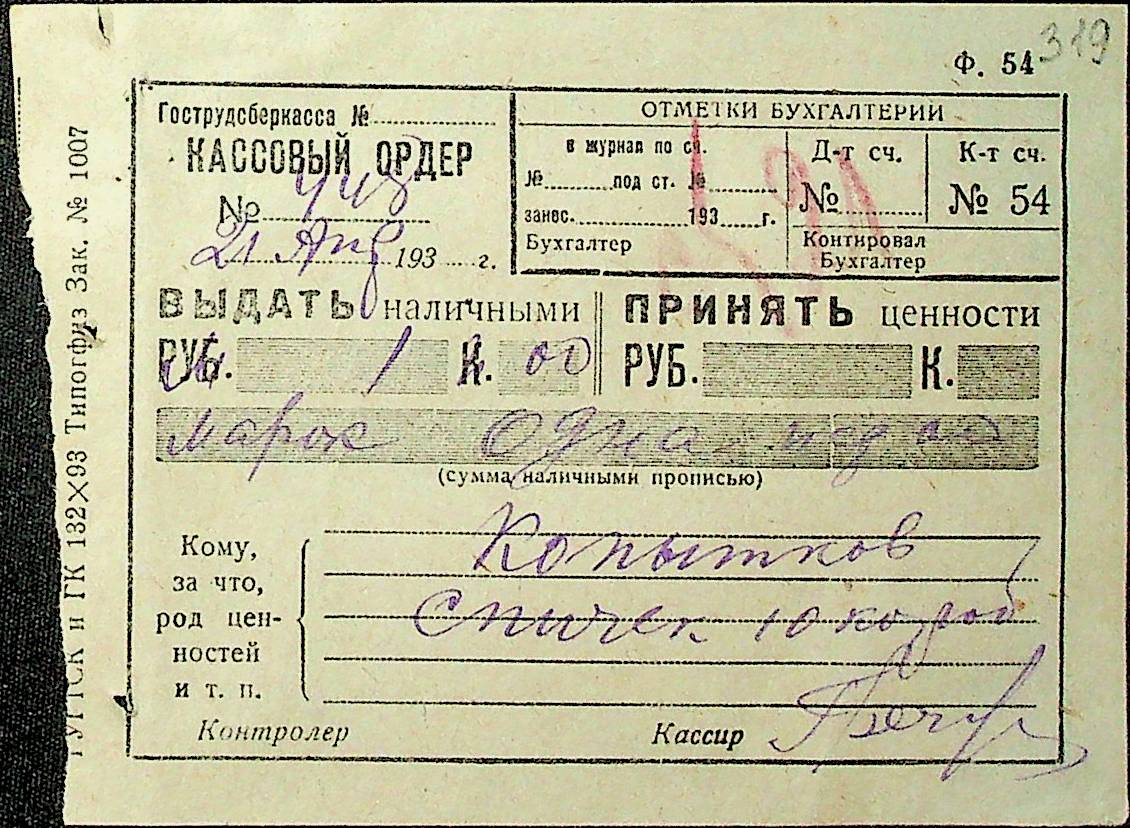 319
Ф. 54
Гострудсберкасса №
КАССОВЫЙ ОРДЕР
№ 448
21 Апр 193 г.
ОТМЕТКИ БУХГАЛТЕРИИ
в журнал по сч.
№ под ст. №
занес. 193 г.
Бухгалтер
Д-т сч.
№
К-т сч.
№ 54
Контировал
Бухгалтер
ВЫДАТЬ наличными
РУБ. 1 К. 00
ПРИНЯТЬ ценности
РУБ. К.
марок одна
(сумма наличными прописью)
Кому,
за что,
род цен-
ностей
и т. п.
Копытков
Спичек 10 короб
Контролер
Кассир
ГУГТСК и ГК 132×93 Типогфиз Зак. № 1007